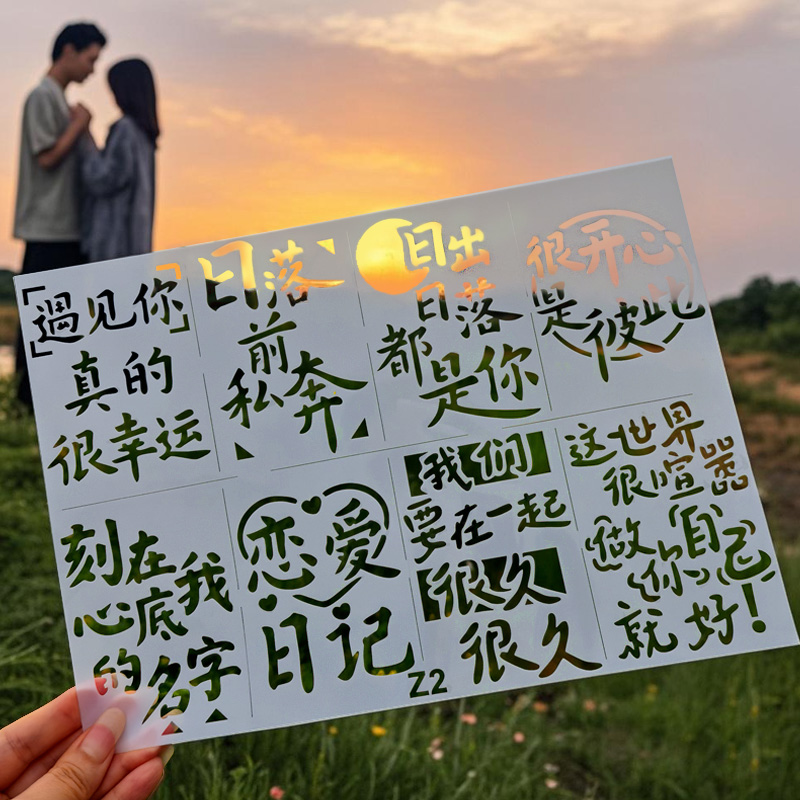 遇见你
真的
很幸运
日落
前
私奔
日出
日落
都是你
很开心
是彼此
刻在
心底我
的名字
恋爱
日记
我们
要在一起
很久
很久
这世界
很喧嚣
做你自己
就好!
Z2